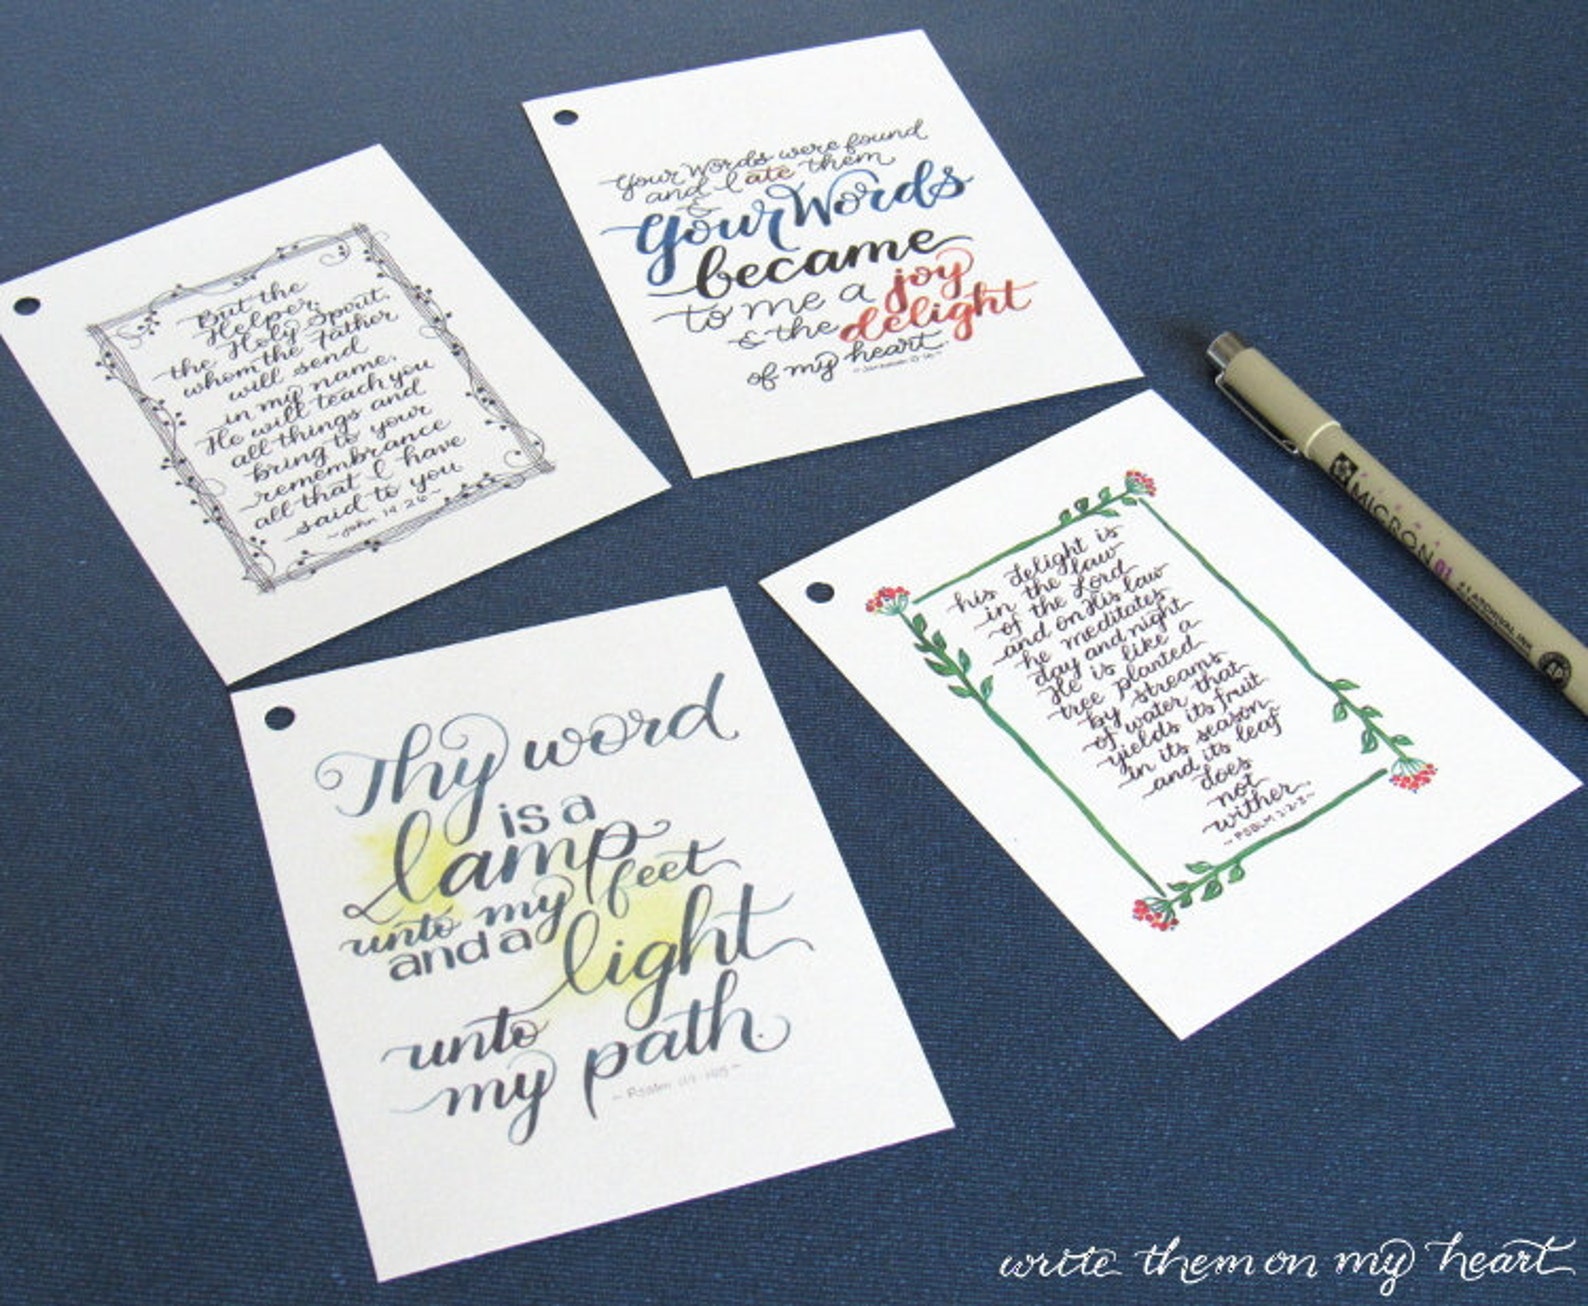 But the
Helper,
the Holy Spirit,
whom the Father
will send
in my name,
He will teach you
all things and
bring to your
remembrance
all that I have
said to you
~ John 14:26 ~
Your Words were found
and I ate them
&
Your Words
became
to me a joy
& the delight
of my heart.
~ Jeremiah 15:16 ~
Thy word
is a
lamp
unto my feet
and a light
unto
my path.
~ Psalm 119:105 ~
his delight is
in the law
of the Lord
and on His law
he meditates
day and night
He is like a
tree planted
by streams
of water that
yields its fruit
in its season
and its leaf
does
not
wither.
~ PSALM 1:2-3 ~
MICRON 01
ARCHIVAL INK
write them on my heart